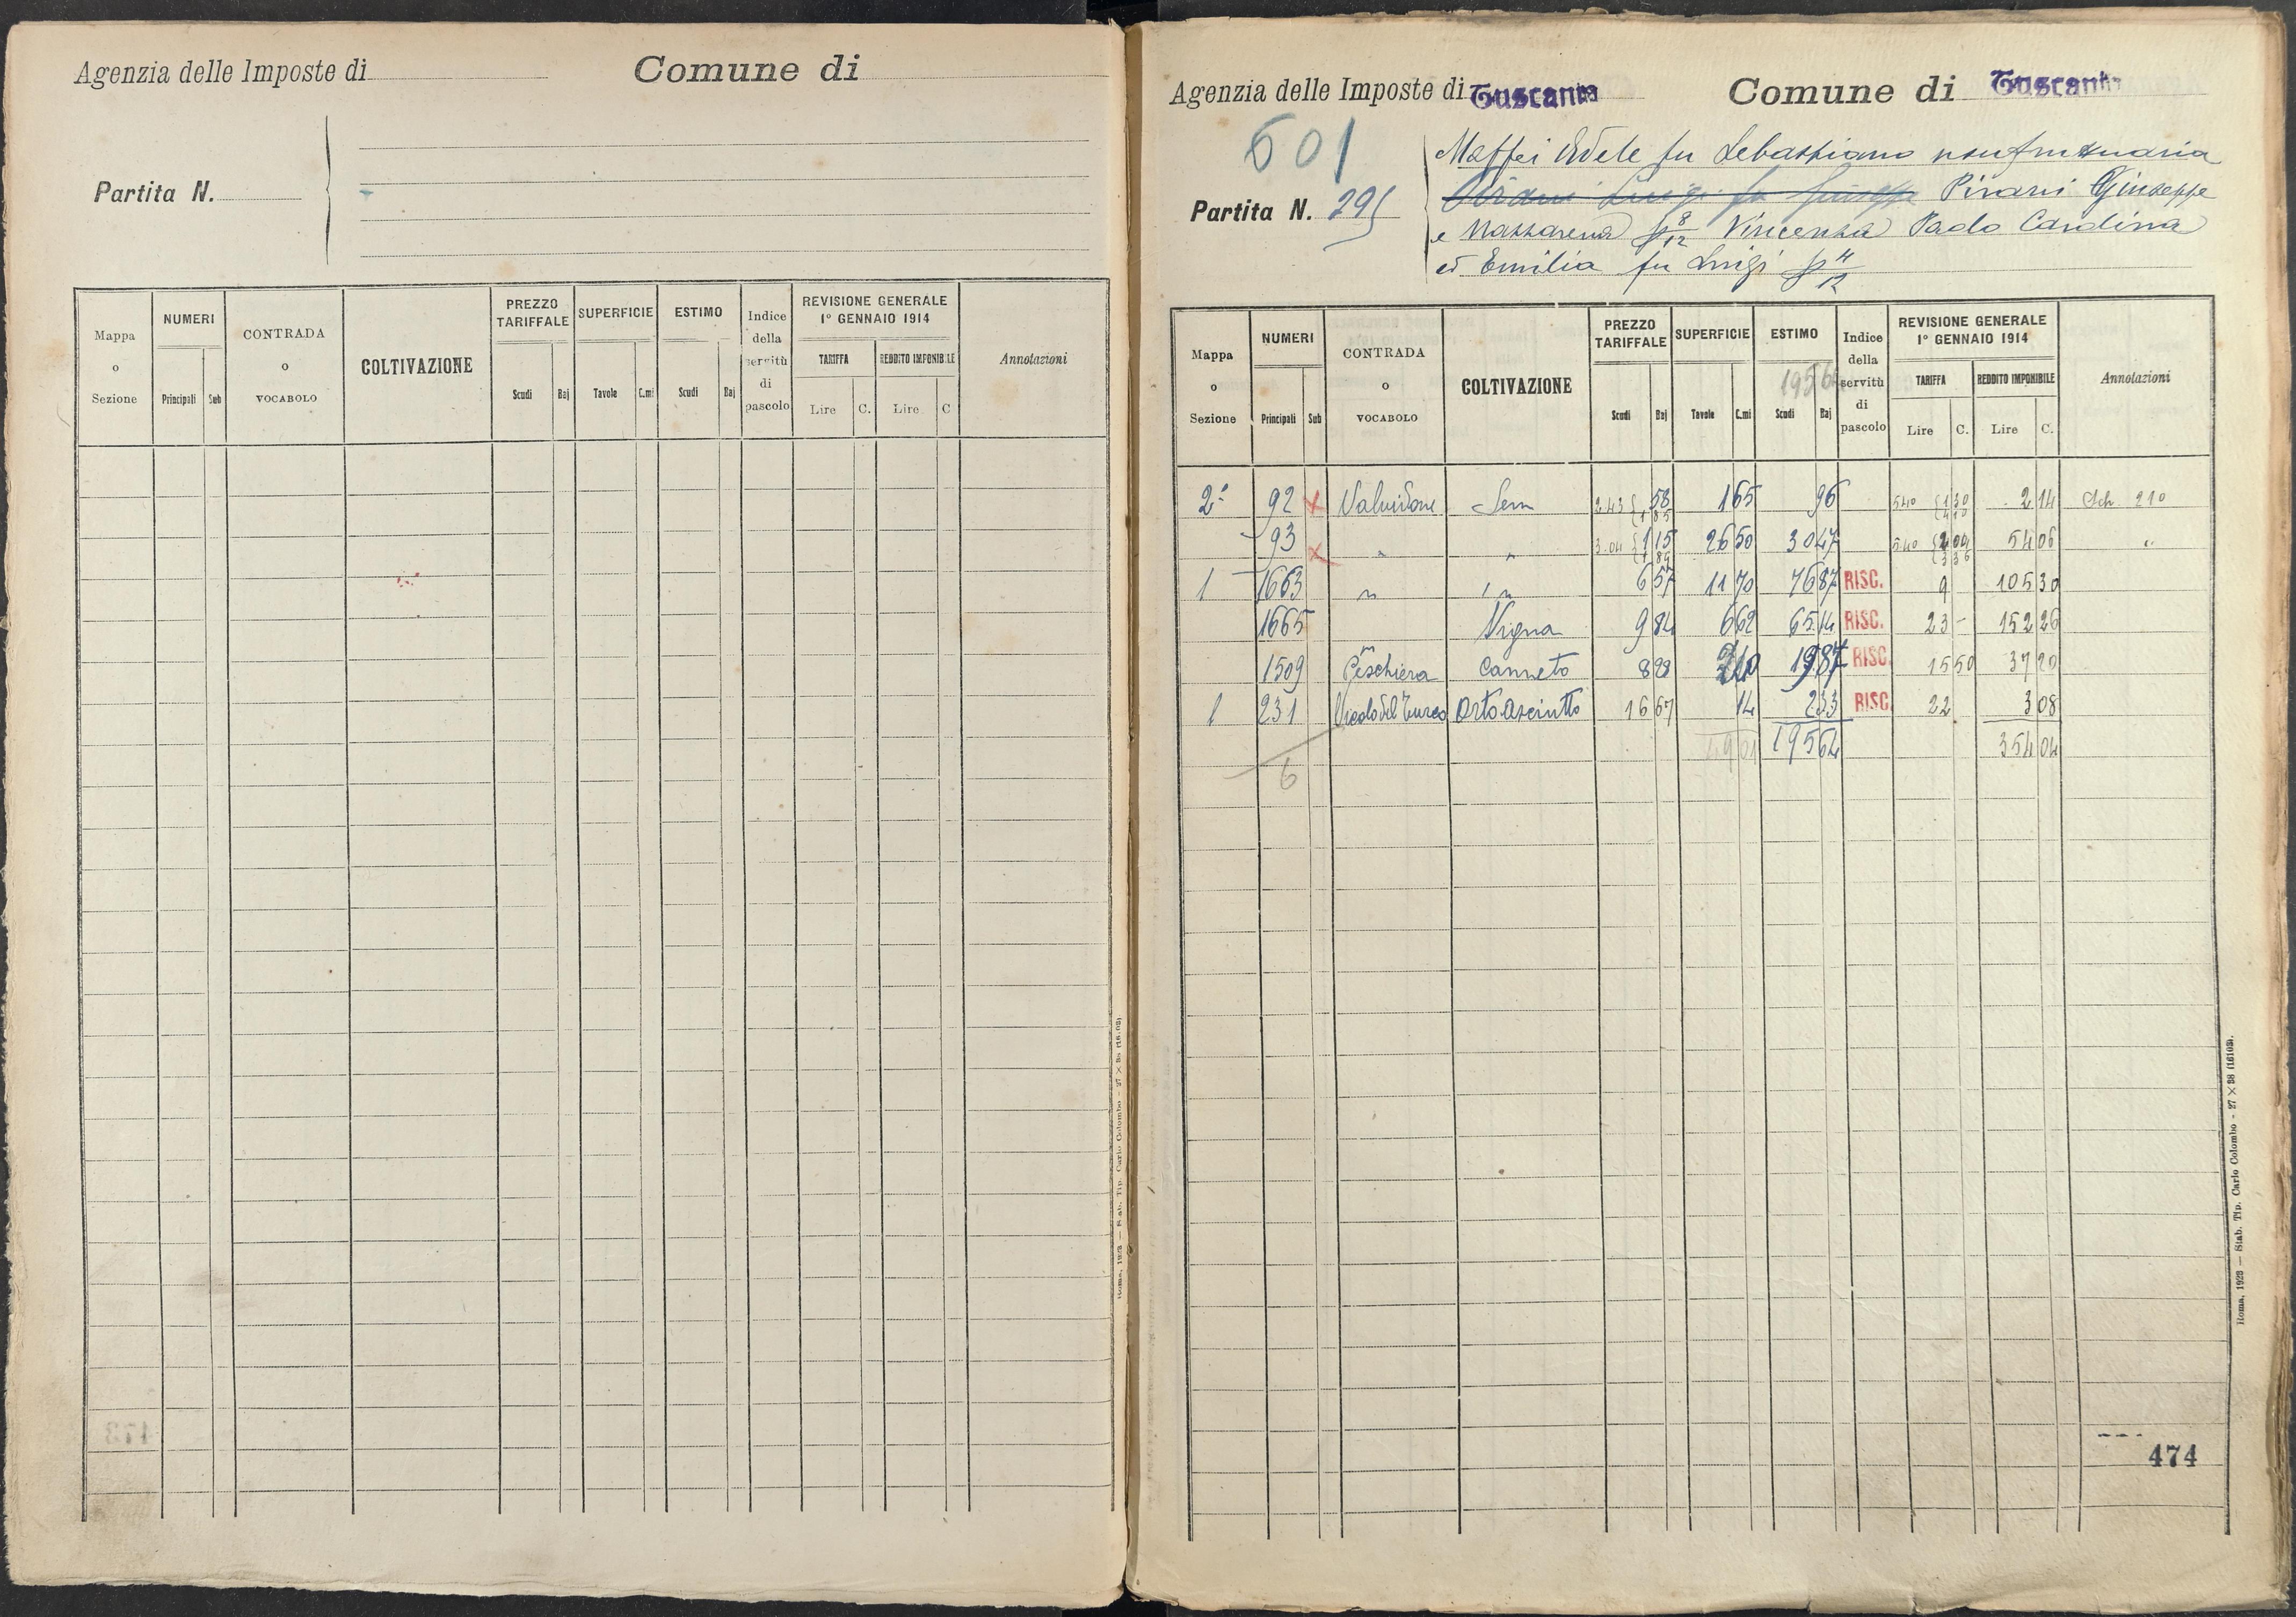 Agenzia delle Imposte di
Comune di
Partita N.
Mappa o Sezione
NUMERI
Principali Sub
CONTRADA o VOCABOLO
COLTIVAZIONE
PREZZO TARIFFALE
Scudi Baj
SUPERFICIE
Tavole C.mi
ESTIMO
Scudi Baj
Indice della servitù di pascolo
REVISIONE GENERALE
1° GENNAIO 1914
TARIFFA REDDITO IMPONIBILE
Lire C. Lire C
Annotazioni
Roma, 1923 — Stab. Tip. Carlo Colombo - 27 × 38 (16103).
Agenzia delle Imposte di Tuscania
Comune di Tuscania
601
Partita N. 295
Maffei Edele fu Sebastiano usufruttuaria
Pirani Giuseppe
e Nazzarena p 8/12 Vincenza Paolo Candina
ed Emilia fu Luigi p 4/12
Mappa o Sezione
NUMERI
Principali Sub
CONTRADA o VOCABOLO
COLTIVAZIONE
PREZZO TARIFFALE
Scudi Baj
SUPERFICIE
Tavole C.mi
ESTIMO
19564
Scudi Baj
Indice della servitù di pascolo
REVISIONE GENERALE
1° GENNAIO 1914
TARIFFA REDDITO IMPONIBILE
Lire C. Lire C.
Annotazioni
2ª 92 x Valvidone Sem 2.43 { 58 1 85 1 65 96 5 40 { 1 30 4 10 2 14 Sch. 210
93 x " " 3.04 { 1 15 1 89 26 50 30 47 5 40 { 2 04 3 36 54 06 "
1 1663 " " 6 57 11 70 76 87 RISC. 9 105 30
1665 Vigna 9 84 6 62 65 14 RISC. 23 - 152 26
1509 Peschiera Canneto 8 28 2 40 19 87 RISC. 15 50 37 20
1 231 Vicolo del Turco Orto asciutto 16 67 14 2 33 RISC. 22 3 08
49 01 195 64 354 04
6
474
Roma, 1923 — Stab. Tip. Carlo Colombo - 27 × 38 (16103).